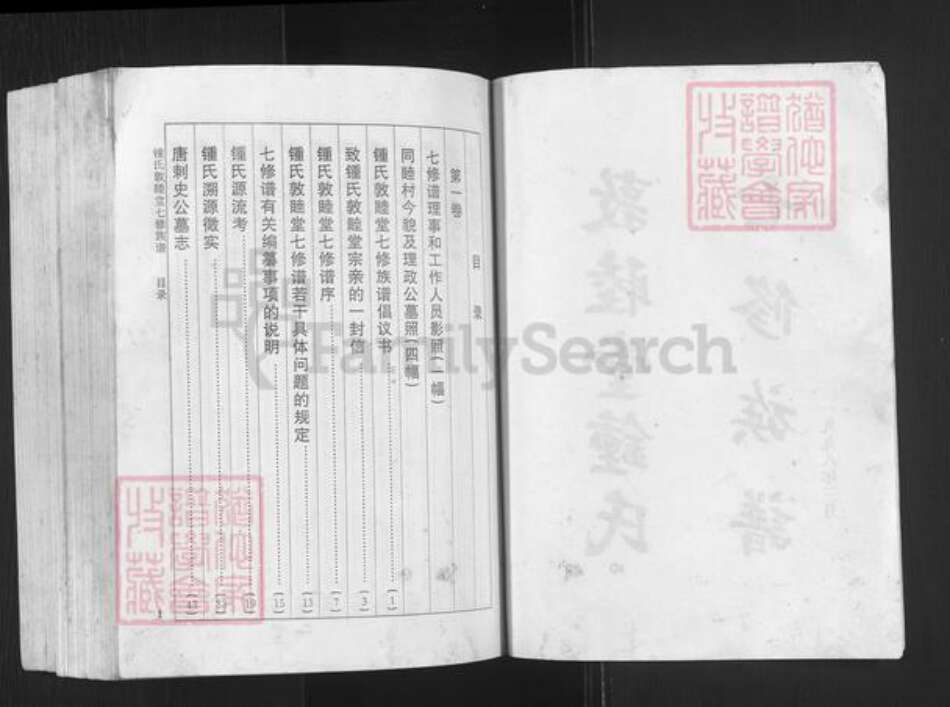 猶他家
譜學會
收藏
目录
第一卷
七修谱理事和工作人员影照(一幅)
同睦村今貌及理政公墓照(四幅)
锺氏敦睦堂七修族谱倡议书 (1)
致锺氏敦睦堂宗亲的一封信 (3)
锺氏敦睦堂七修谱序 (7)
锺氏敦睦堂七修谱若干具体问题的规定 (13)
七修谱有关编纂事项的说明 (15)
锺氏源流考 (19)
锺氏溯源徵实
唐刺史公墓志
锺氏敦睦堂七修族谱 目录
1
猶他家
譜學會
收藏
FamilySearch